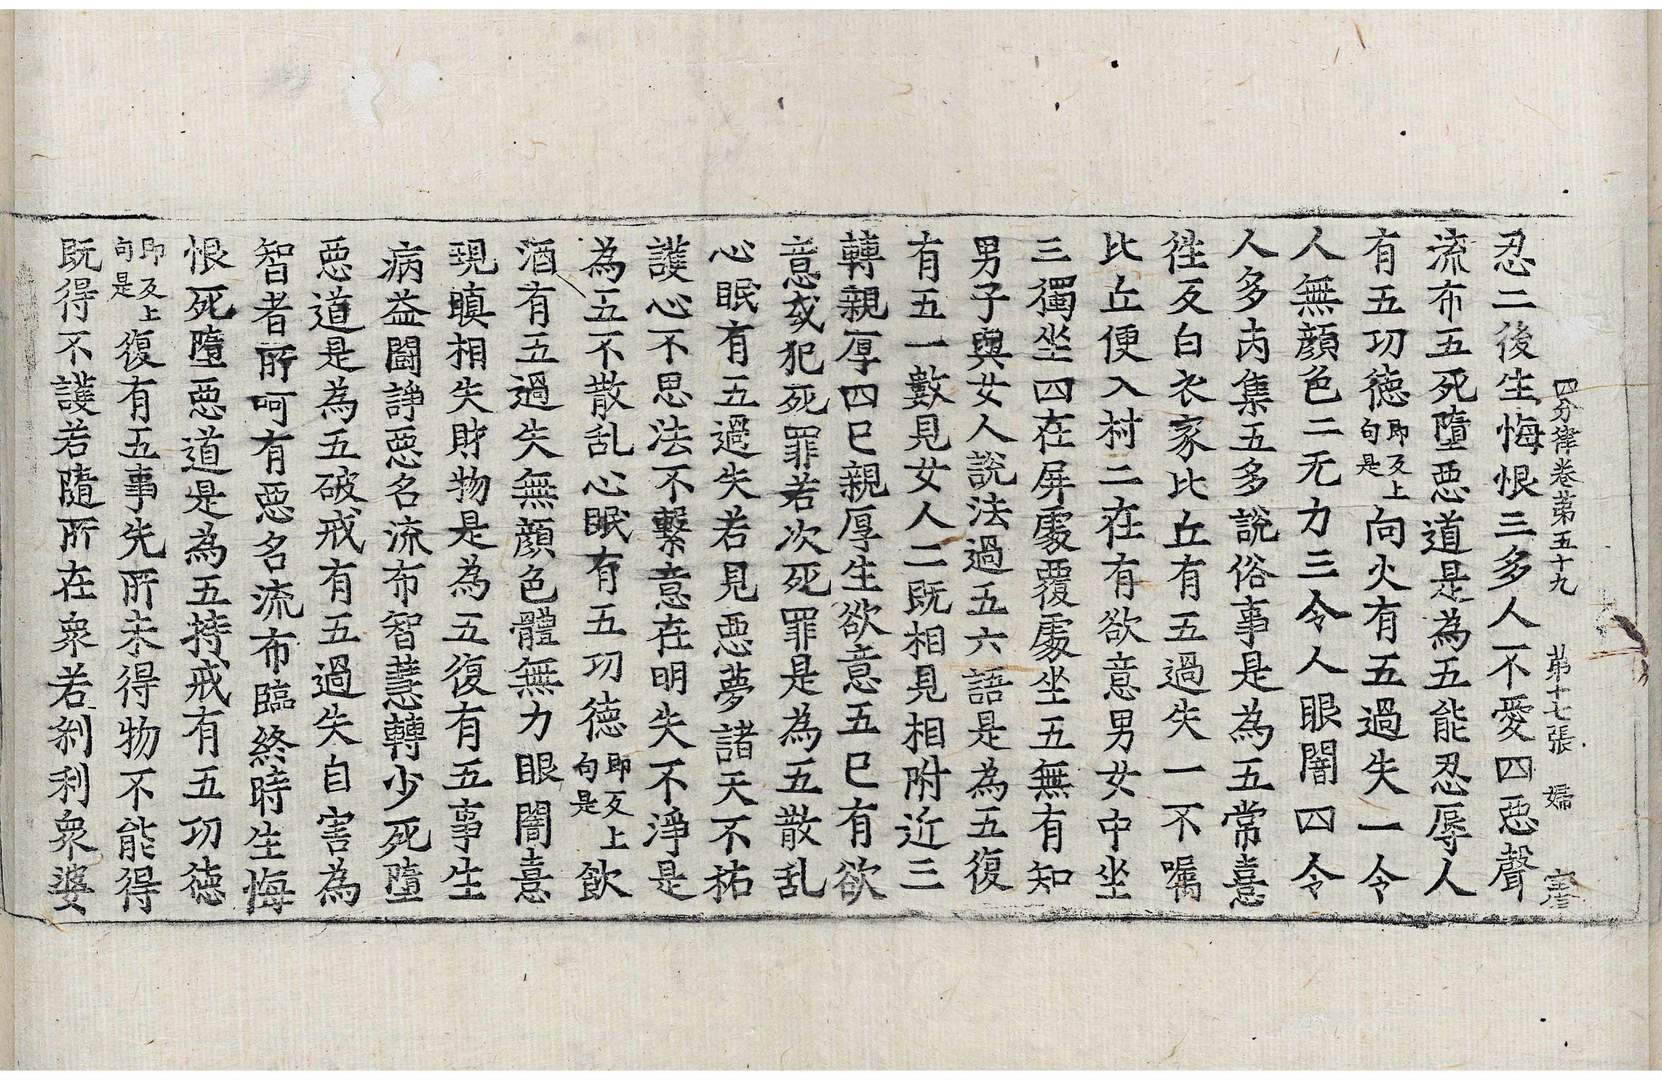 四分律卷第五十九 第十七張 婦
忍二後生悔恨三多人不愛四惡聲
流布五死墮惡道是為五能忍辱人
有五功德即反上句是向火有五過失一令
人無顏色二无力三令人眼闇四令
人多肉集五多說俗事是為五常憙
往反白衣家比丘有五過失一不囑
比丘便入村二在有欲意男女中坐
三獨坐四在屏處覆處坐五無有知
男子與女人說法過五六語是為五復
有五一數見女人二既相見相附近三
轉親厚四已親厚生欲意五已有欲
意或犯死罪若次死罪是為五散乱
心眠有五過失若見惡夢諸天不祐
護心不思法不繫意在明失不淨是
為五不散乱心眠有五功德即反上句是飲
酒有五過失無顏色體無力眼闇憙
現瞋相失財物是為五復有五事生
病益鬪諍惡名流布智慧轉少死墮
惡道是為五破戒有五過失自害為
智者所呵有惡名流布臨終時生悔
恨死墮惡道是為五持戒有五功德
即反上句是復有五事先所未得物不能得
既得不護若隨所在衆若刹利衆婆